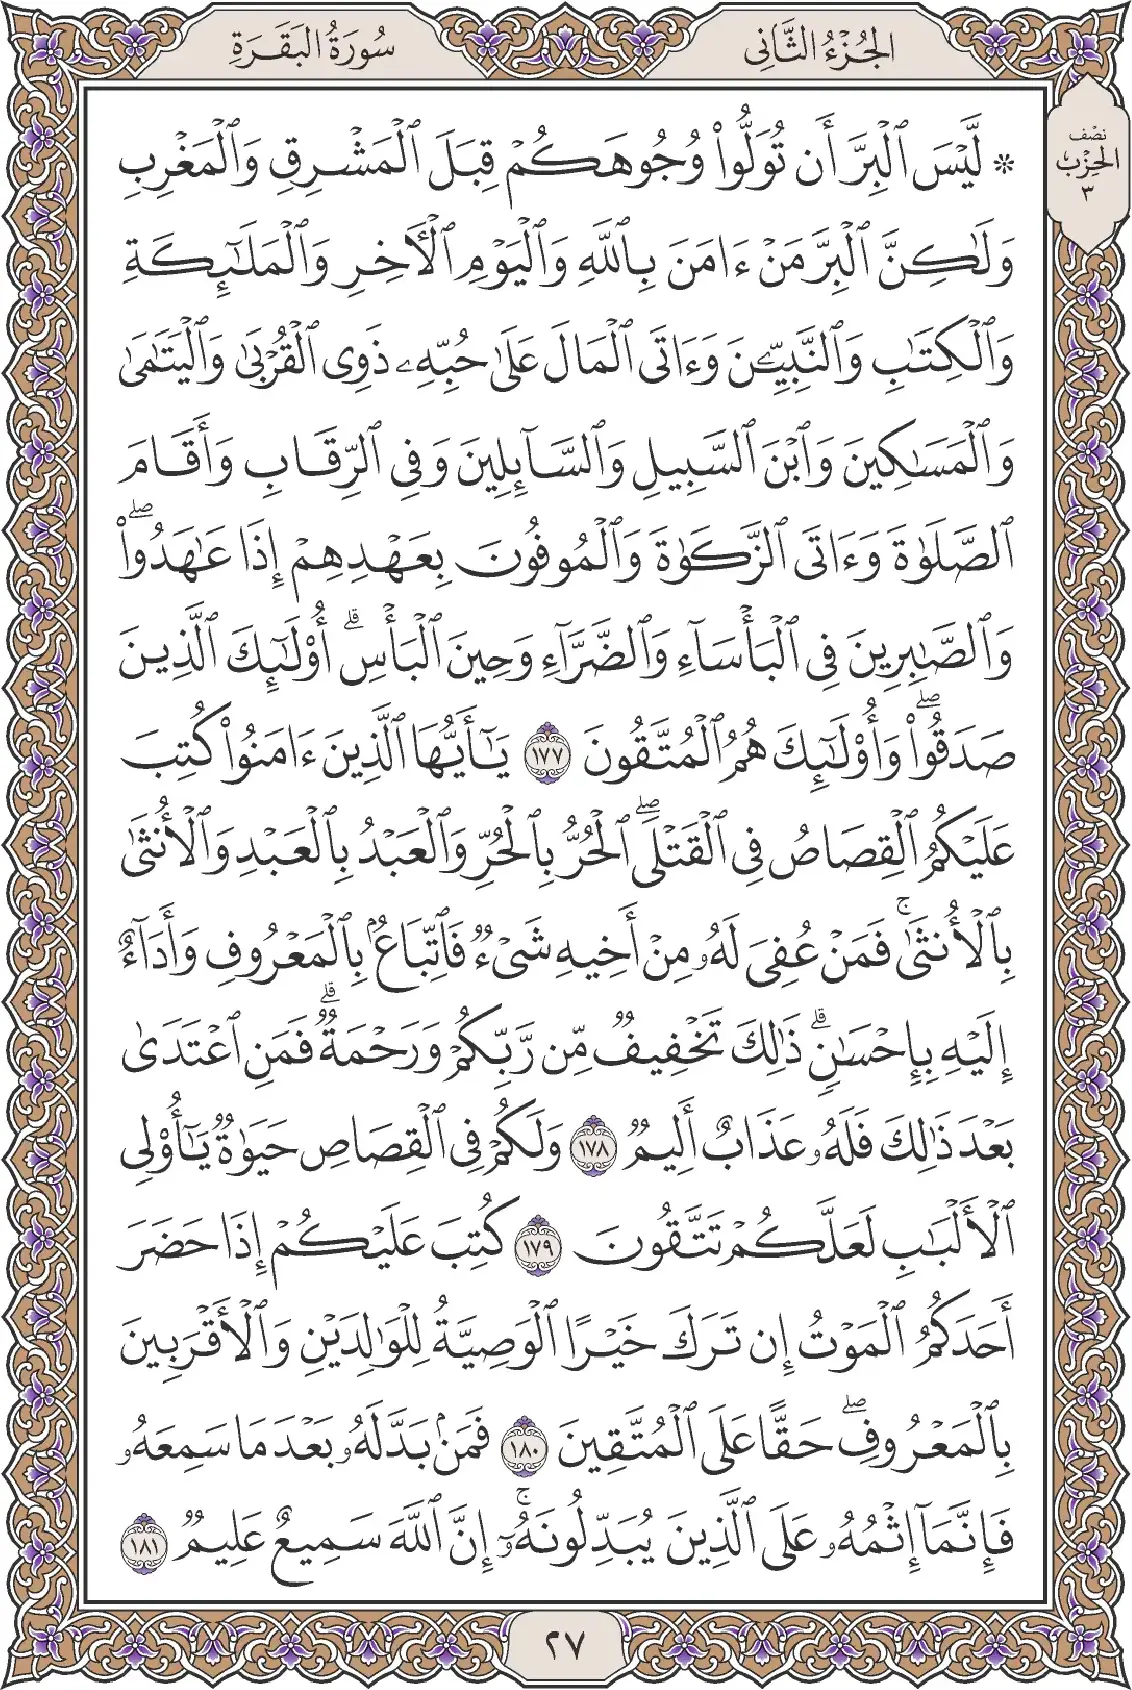 الجُزْءُ الثَّانِي
سُورَةُ البَقَرَةِ
نصْف
الحِزْب
٣
۞ لَّيْسَ ٱلْبِرَّ أَن تُوَلُّوا۟ وُجُوهَكُمْ قِبَلَ ٱلْمَشْرِقِ وَٱلْمَغْرِبِ
وَلَٰكِنَّ ٱلْبِرَّ مَنْ ءَامَنَ بِٱللَّهِ وَٱلْيَوْمِ ٱلْأٓخِرِ وَٱلْمَلَٰٓئِكَةِ
وَٱلْكِتَٰبِ وَٱلنَّبِيِّـۧنَ وَءَاتَى ٱلْمَالَ عَلَىٰ حُبِّهِۦ ذَوِى ٱلْقُرْبَىٰ وَٱلْيَتَٰمَىٰ
وَٱلْمَسَٰكِينَ وَٱبْنَ ٱلسَّبِيلِ وَٱلسَّآئِلِينَ وَفِى ٱلرِّقَابِ وَأَقَامَ
ٱلصَّلَوٰةَ وَءَاتَى ٱلزَّكَوٰةَ وَٱلْمُوفُونَ بِعَهْدِهِمْ إِذَا عَٰهَدُوا۟ۖ
وَٱلصَّٰبِرِينَ فِى ٱلْبَأْسَآءِ وَٱلضَّرَّآءِ وَحِينَ ٱلْبَأْسِۗ أُو۟لَٰٓئِكَ ٱلَّذِينَ
صَدَقُوا۟ۖ وَأُو۟لَٰٓئِكَ هُمُ ٱلْمُتَّقُونَ ١٧٧ يَٰٓأَيُّهَا ٱلَّذِينَ ءَامَنُوا۟ كُتِبَ
عَلَيْكُمُ ٱلْقِصَاصُ فِى ٱلْقَتْلَىۖ ٱلْحُرُّ بِٱلْحُرِّ وَٱلْعَبْدُ بِٱلْعَبْدِ وَٱلْأُنثَىٰ
بِٱلْأُنثَىٰۚ فَمَنْ عُفِىَ لَهُۥ مِنْ أَخِيهِ شَىْءٌ فَٱتِّبَاعٌۢ بِٱلْمَعْرُوفِ وَأَدَآءٌ
إِلَيْهِ بِإِحْسَٰنٍۗ ذَٰلِكَ تَخْفِيفٌ مِّن رَّبِّكُمْ وَرَحْمَةٌۗ فَمَنِ ٱعْتَدَىٰ
بَعْدَ ذَٰلِكَ فَلَهُۥ عَذَابٌ أَلِيمٌ ١٧٨ وَلَكُمْ فِى ٱلْقِصَاصِ حَيَوٰةٌ يَٰٓأُو۟لِى
ٱلْأَلْبَٰبِ لَعَلَّكُمْ تَتَّقُونَ ١٧٩ كُتِبَ عَلَيْكُمْ إِذَا حَضَرَ
أَحَدَكُمُ ٱلْمَوْتُ إِن تَرَكَ خَيْرًا ٱلْوَصِيَّةُ لِلْوَٰلِدَيْنِ وَٱلْأَقْرَبِينَ
بِٱلْمَعْرُوفِۖ حَقًّا عَلَى ٱلْمُتَّقِينَ ١٨٠ فَمَنۢ بَدَّلَهُۥ بَعْدَ مَا سَمِعَهُۥ
فَإِنَّمَآ إِثْمُهُۥ عَلَى ٱلَّذِينَ يُبَدِّلُونَهُۥٓۚ إِنَّ ٱللَّهَ سَمِيعٌ عَلِيمٌ ١٨١
٢٧